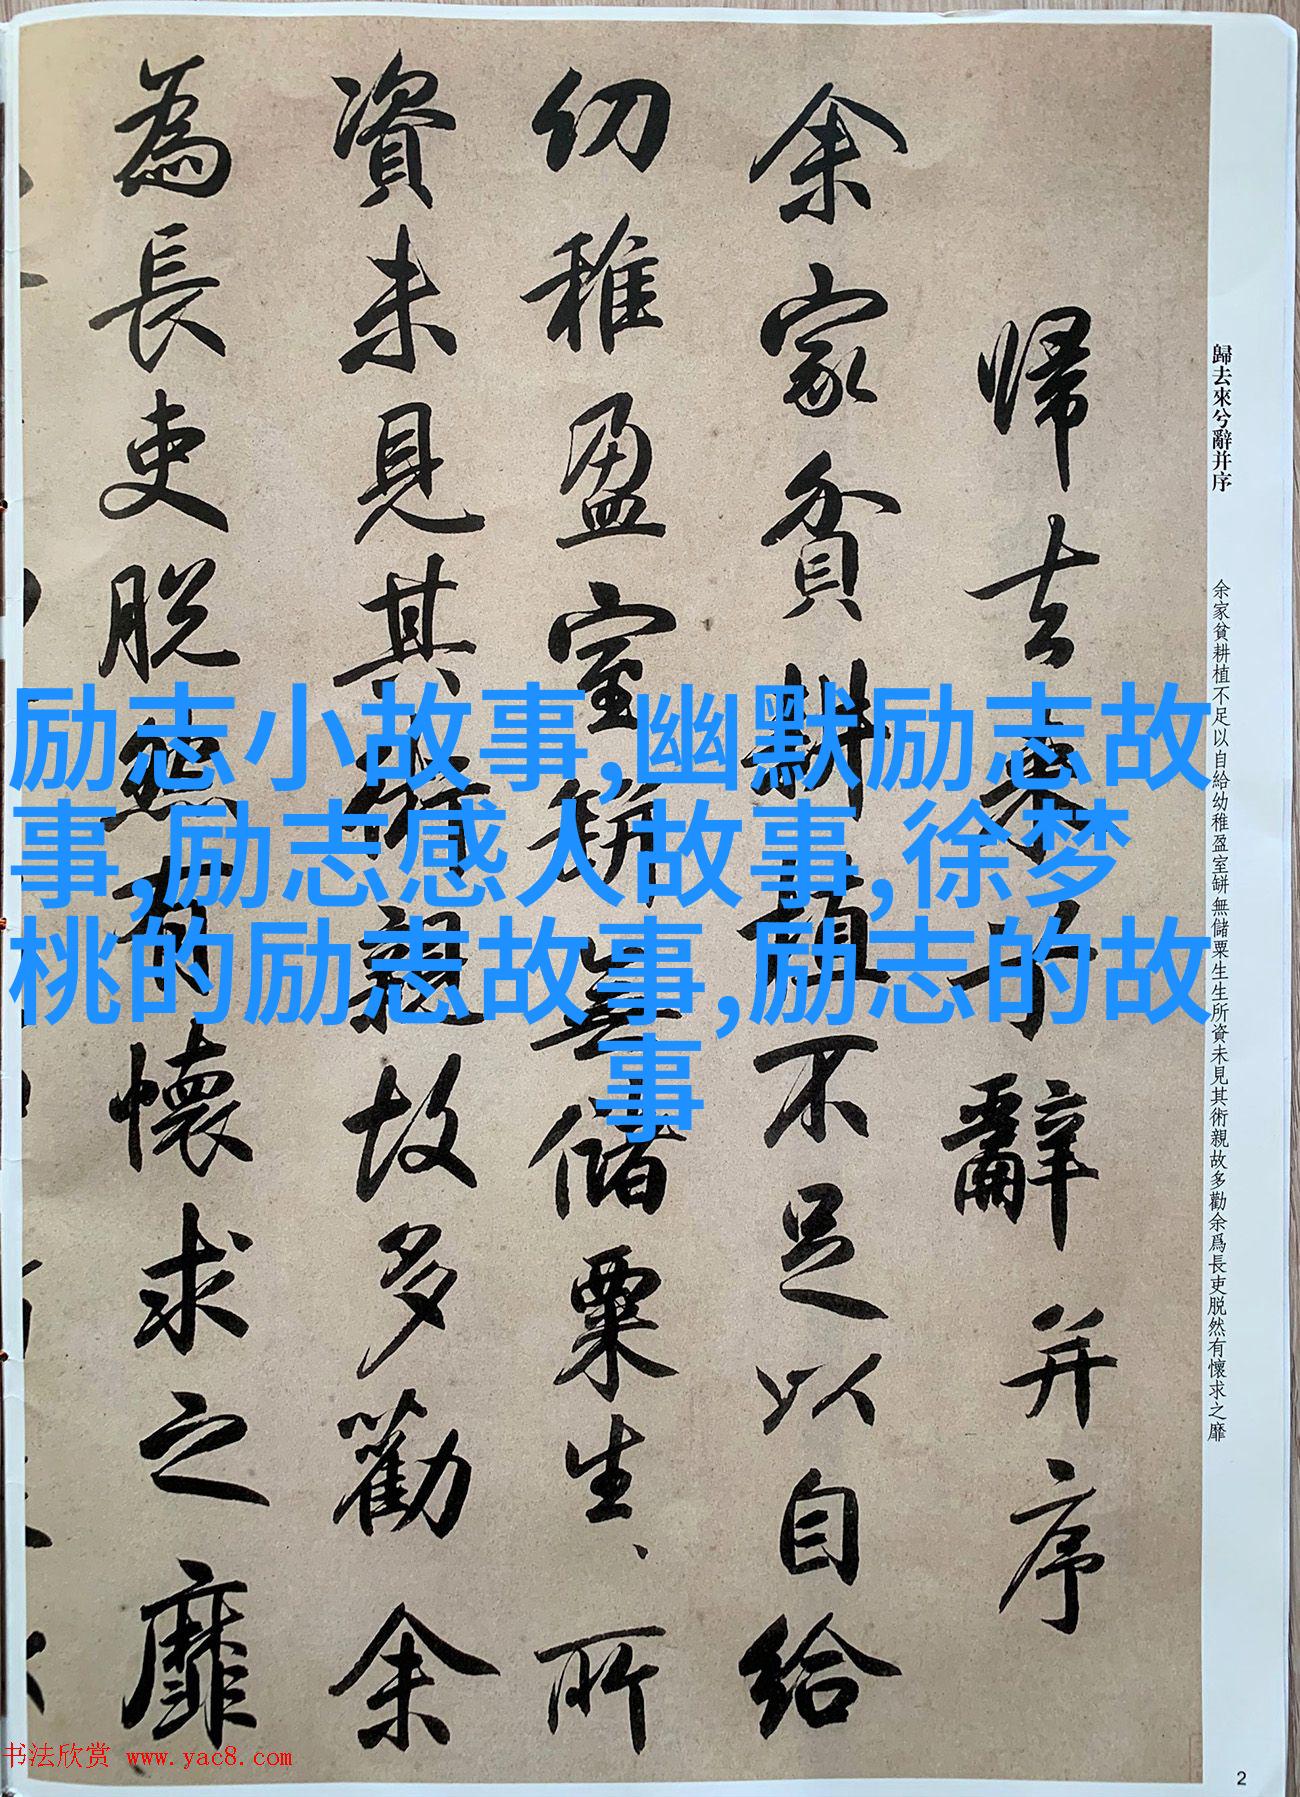 歸去來兮辭并序
余家貧耕植不足以自給幼稚盈室缾無儲粟生生所資未見其術親故多勸余爲長吏脱然有懷求之靡
歸去来兮辭并序
余家貧耕植不足以自給
幼稚盈室缾無儲粟生、所
資未見其術親故多勸余
為長吏脱然有懷求之靡
励志小故事,幽默励志故
事,励志感人故事,徐梦
桃的励志故事,励志的故
事
书法欣赏 www.yac8.com
2